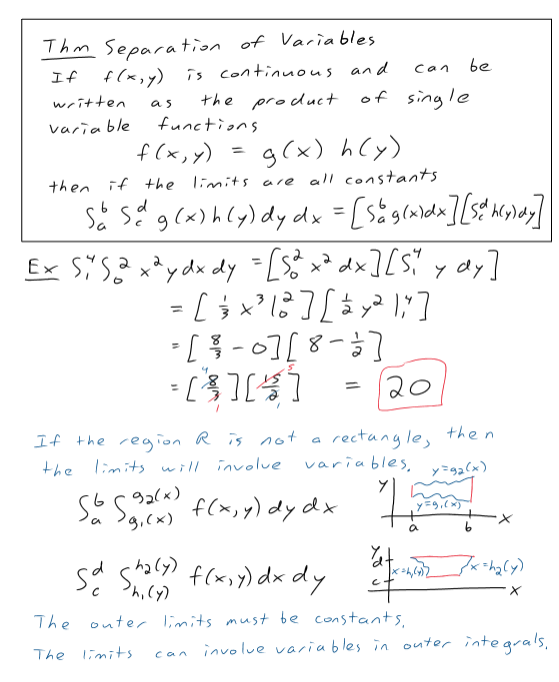 Thm Separation of Variables
If f(x,y) is continuous and can be
written as the product of single
variable functions
f(x,y) = g(x) h(y)
then if the limits are all constants
∫_a^b ∫_c^d g(x) h(y) dy dx = [∫_a^b g(x) dx][∫_c^d h(y) dy]
Ex ∫_1^4 ∫_0^2 x² y dx dy = [∫_0^2 x² dx][∫_1^4 y dy]
= [1/3 x³ |_0^2][1/2 y² |_1^4]
= [8/3 - 0][8 - 1/2]
= [8/3][15/2] = 20
4 5
1 1
If the region R is not a rectangle, then
the limits will involve variables.
y=g₂(x)
∫_a^b ∫_{g₁(x)}^{g₂(x)} f(x,y) dy dx
y
y=g₁(x)
a b x
∫_c^d ∫_{h₁(y)}^{h₂(y)} f(x,y) dx dy
y
d
x=h₁(y) x=h₂(y)
c
x
The outer limits must be constants.
The limits can involve variables in outer integrals.